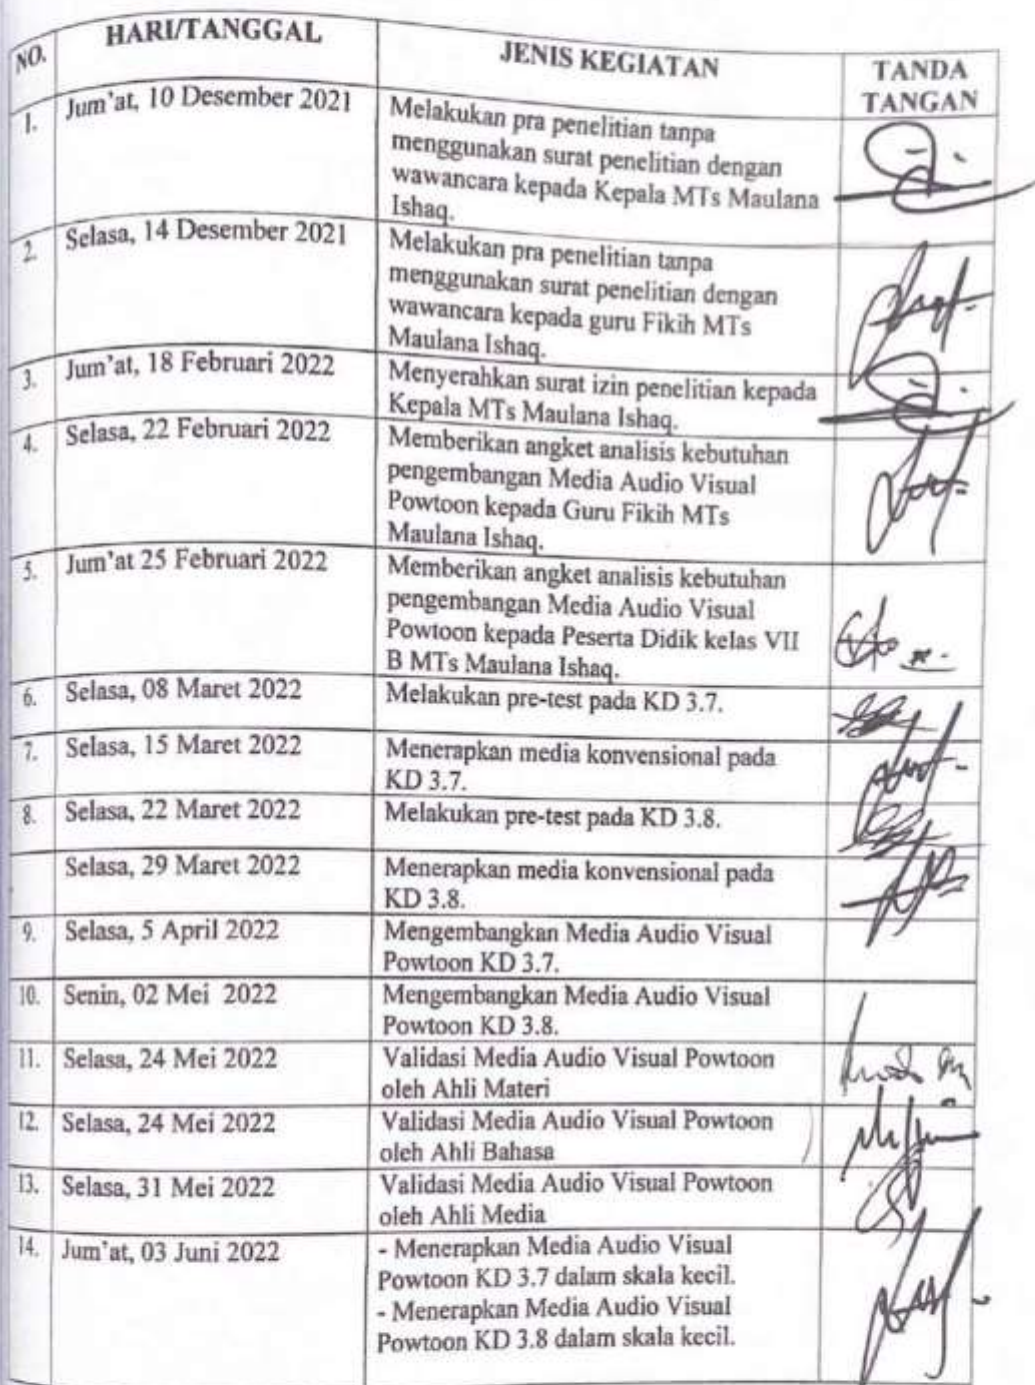 NO. HARI/TANGGAL JENIS KEGIATAN TANDA
TANGAN
1. Jum'at, 10 Desember 2021 Melakukan pra penelitian tanpa
menggunakan surat penelitian dengan
wawancara kepada Kepala MTs Maulana
Ishaq.
2. Selasa, 14 Desember 2021 Melakukan pra penelitian tanpa
menggunakan surat penelitian dengan
wawancara kepada guru Fikih MTs
Maulana Ishaq.
3. Jum'at, 18 Februari 2022 Menyerahkan surat izin penelitian kepada
Kepala MTs Maulana Ishaq.
4. Selasa, 22 Februari 2022 Memberikan angket analisis kebutuhan
pengembangan Media Audio Visual
Powtoon kepada Guru Fikih MTs
Maulana Ishaq.
5. Jum'at 25 Februari 2022 Memberikan angket analisis kebutuhan
pengembangan Media Audio Visual
Powtoon kepada Peserta Didik kelas VII
B MTs Maulana Ishaq.
6. Selasa, 08 Maret 2022 Melakukan pre-test pada KD 3.7.
7. Selasa, 15 Maret 2022 Menerapkan media konvensional pada
KD 3.7.
8. Selasa, 22 Maret 2022 Melakukan pre-test pada KD 3.8.
Selasa, 29 Maret 2022 Menerapkan media konvensional pada
KD 3.8.
9. Selasa, 5 April 2022 Mengembangkan Media Audio Visual
Powtoon KD 3.7.
10. Senin, 02 Mei 2022 Mengembangkan Media Audio Visual
Powtoon KD 3.8.
11. Selasa, 24 Mei 2022 Validasi Media Audio Visual Powtoon
oleh Ahli Materi
12. Selasa, 24 Mei 2022 Validasi Media Audio Visual Powtoon
oleh Ahli Bahasa
13. Selasa, 31 Mei 2022 Validasi Media Audio Visual Powtoon
oleh Ahli Media
14. Jum'at, 03 Juni 2022 - Menerapkan Media Audio Visual
Powtoon KD 3.7 dalam skala kecil.
- Menerapkan Media Audio Visual
Powtoon KD 3.8 dalam skala kecil.